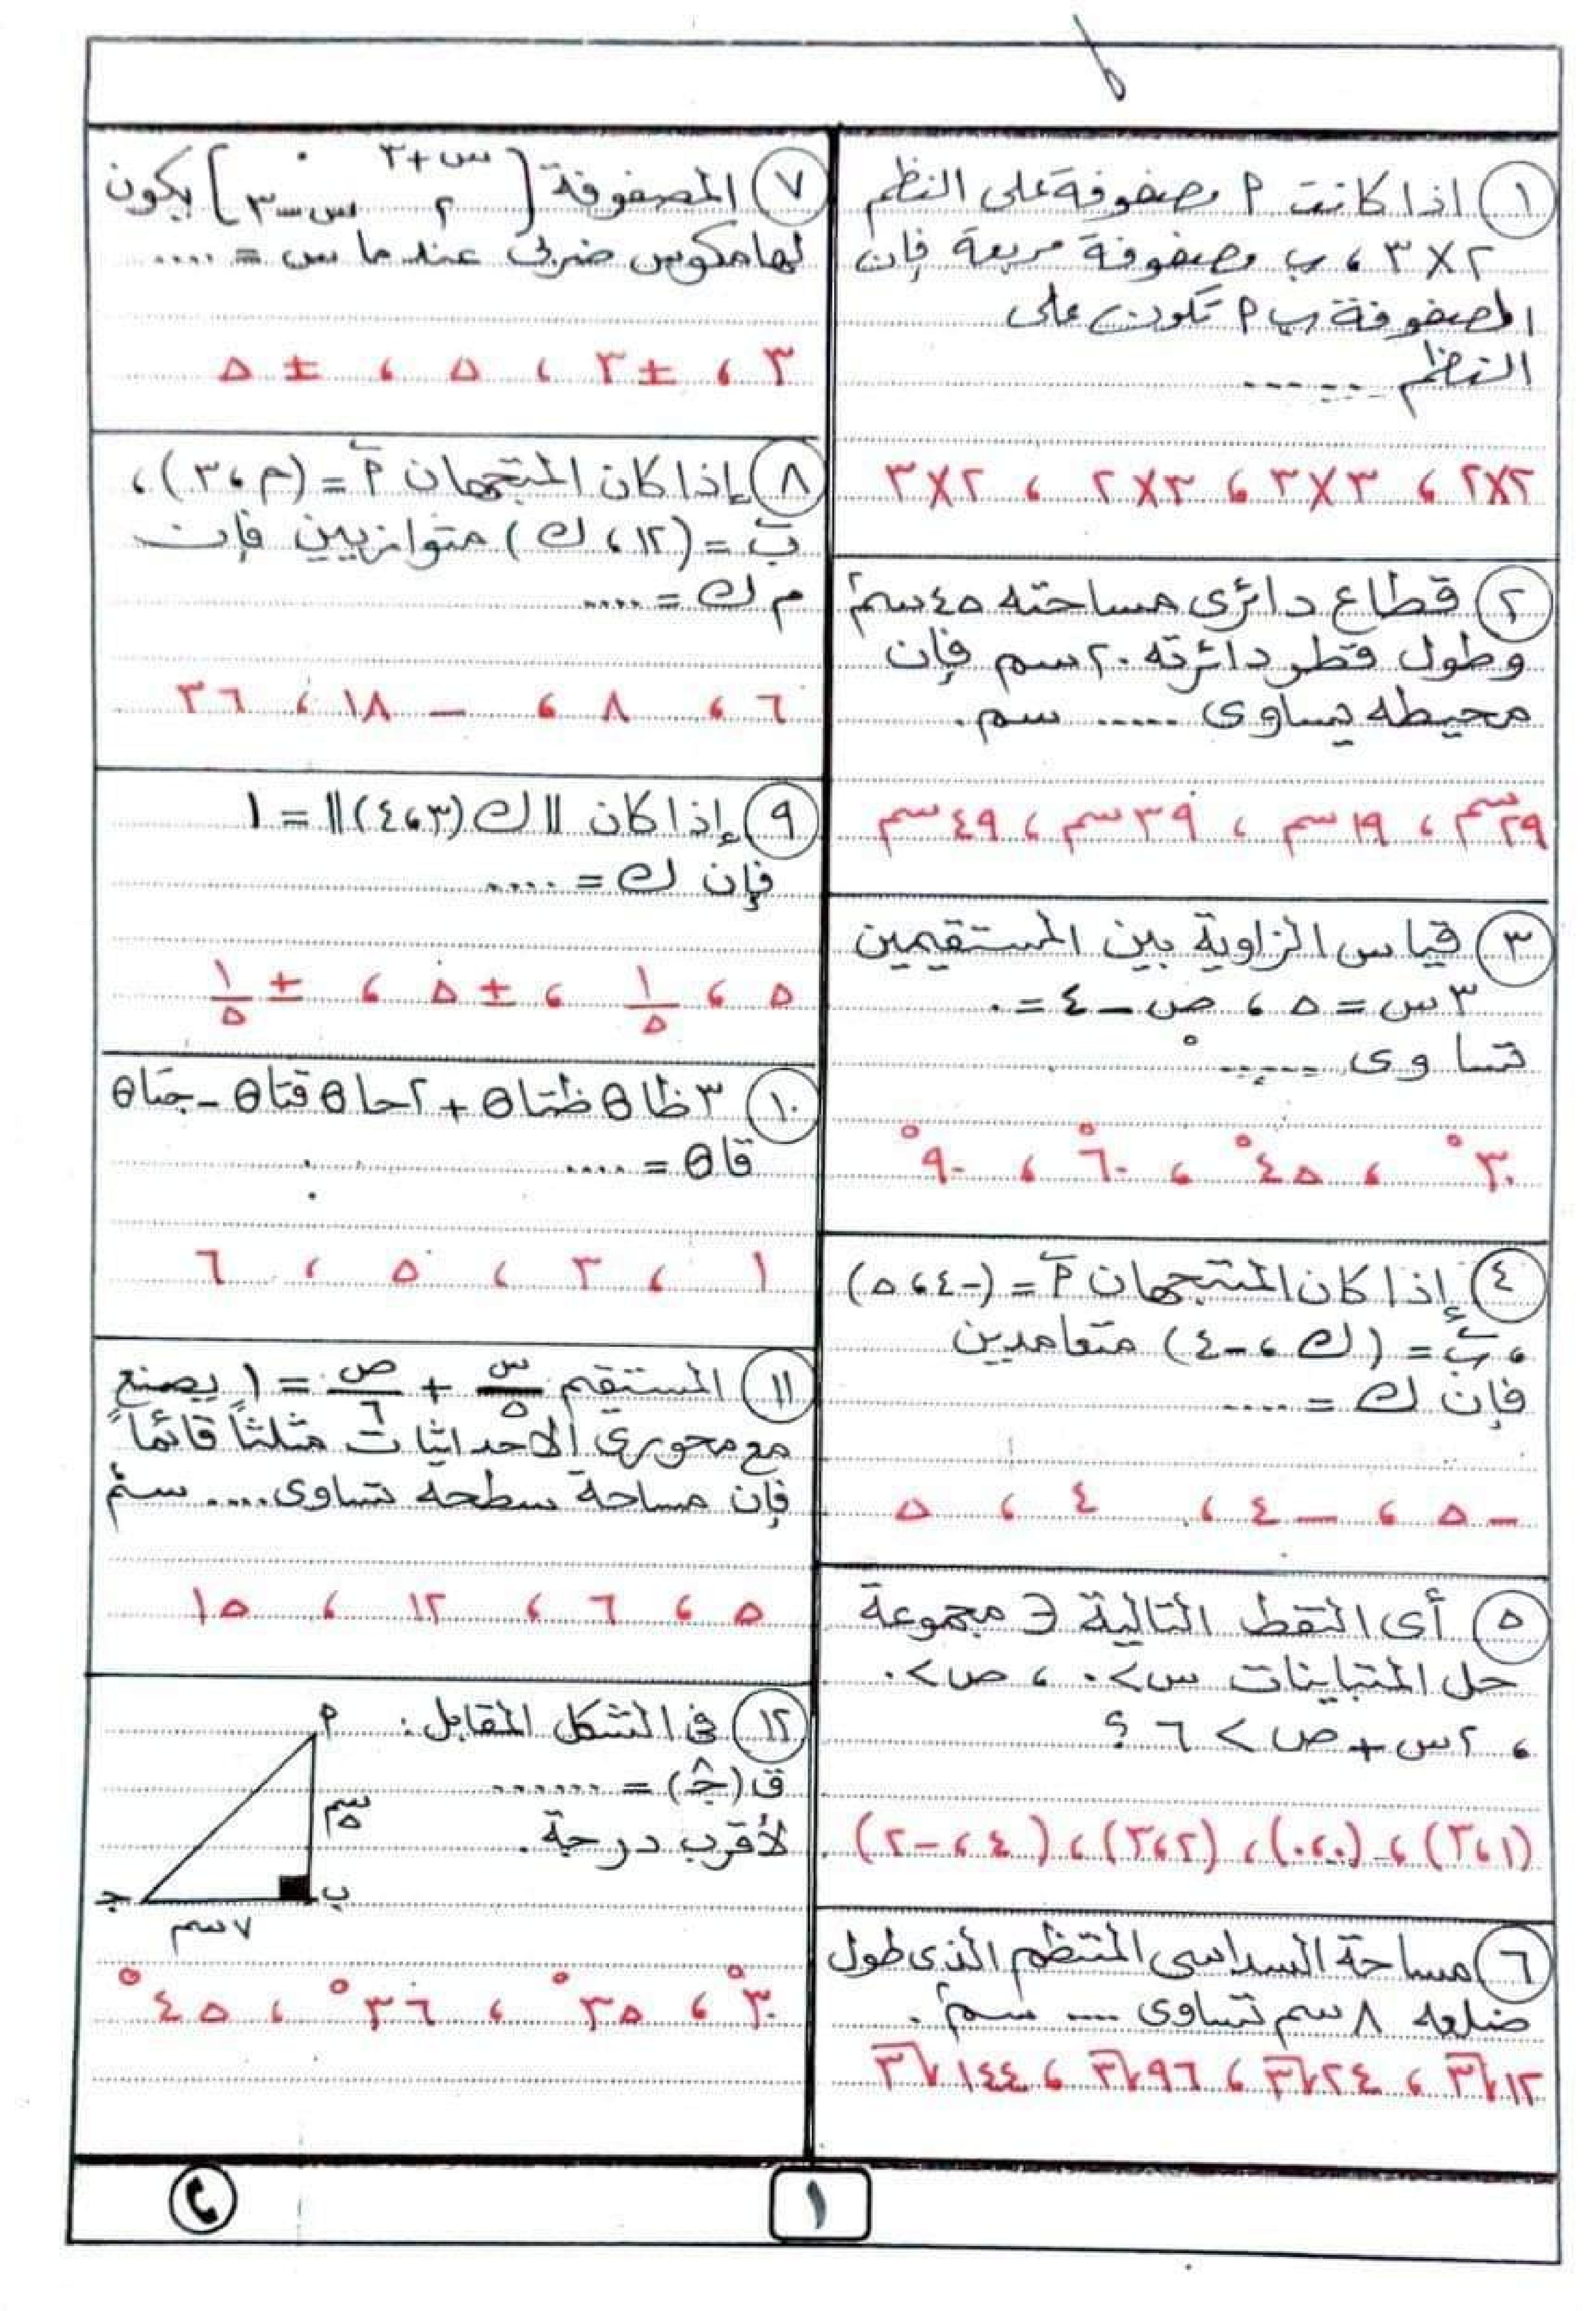 ١ اذا كانت م مصفوفة على النظم
٢×٣ ، ب مصفوفة مربعة فإن
المصفوفة ب م تكون على
النظم ......
٢×٢ ، ٣×٣ ، ٣×٢ ، ٢×٣
٢ قطاع دائرى مساحته ٤٥ سم٢
وطول قطر دائرته ٢٠ سم فإن
محيطه يساوى ..... سم.
٢٩ سم ، ١٩ سم ، ٣٩ سم ، ٤٩ سم
٣ قياس الزاوية بين المستقيمين
٣س = ٥ ، ص – ٤ = ٠
تساوى ......°
٣٠° ، ٤٥° ، ٦٠° ، ٩٠°
٤ إذا كان المتجهان م = (-٤ ، ٥)
، ب = (ك ، -٤) متعامدين
فإن ك = ....
– ٥ ، – ٤ ، ٤ ، ٥
٥ أى النقط التالية ∈ مجموعة
حل المتباينات س > ٠ ، ص > ٠
، ٢س + ص < ٦ ؟
(١ ، ٣) ، (٠ ، ٠) ، (٢ ، ٣) ، (٤ ، -٢)
٦ مساحة السداسى المنتظم الذى طول
ضلعه ٨ سم تساوى .... سم٢.
١٢√٣ ، ٢٤√٣ ، ٩٦√٣ ، ١٤٤√٣
٧ المصفوفة [ س+٣ ٠
٢ س–٣ ] يكون
لها معكوس ضربى عندما س = ....
٣ ، ±٣ ، ٥ ، ±٥
٨ إذا كان المتجهان م = (م ، ٣) ،
ب = (١٢ ، ك) متوازيين فإن
م ك = ....
٦ ، ٨ ، – ١٨ ، ٣٦
٩ إذا كان ‖ك (٣ ، ٤)‖ = ١
فإن ك = ....
٥ ، ١/٥ ، ±٥ ، ±١/٥
١٠ ٣ظاθ ظتاθ + ٢حاθ قتاθ – جتاθ
قاθ = ....
١ ، ٣ ، ٥ ، ٦
١١ المستقيم س/٥ + ص/٦ = ١ يصنع
مع محورى الاحداثيات مثلثاً قائماً
فإن مساحة سطحه تساوى .... سم٢
٥ ، ٦ ، ١٢ ، ١٥
١٢ فى الشكل المقابل :
ق(جـ) = .......
لأقرب درجة.
م
٥ سم
ب
جـ
٧ سم
٣٠° ، ٣٥° ، ٣٦° ، ٤٥°
١